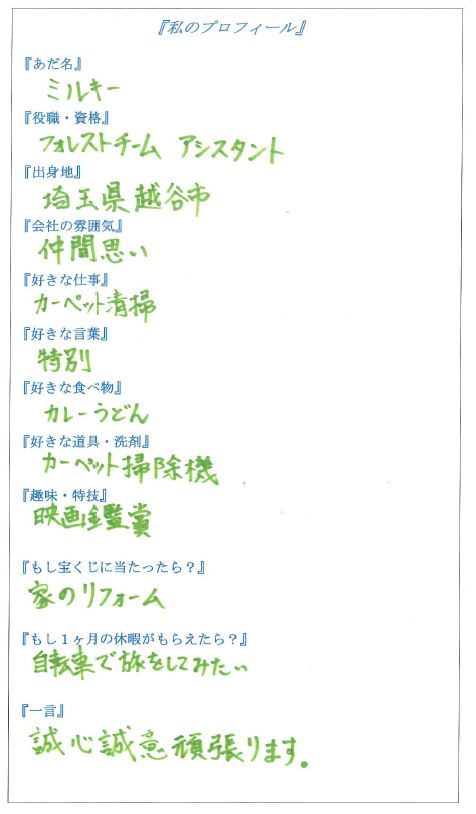 『私のプロフィール』
『あだ名』
ミルキー
『役職・資格』
フォレストチーム アシスタント
『出身地』
埼玉県越谷市
『会社の雰囲気』
仲間思い
『好きな仕事』
カーペット清掃
『好きな言葉』
特別
『好きな食べ物』
カレーうどん
『好きな道具・洗剤』
カーペット掃除機
『趣味・特技』
映画鑑賞
『もし宝くじに当たったら？』
家のリフォーム
『もし１ヶ月の休暇がもらえたら？』
自転車で旅をしてみたい
『一言』
誠心誠意頑張ります。